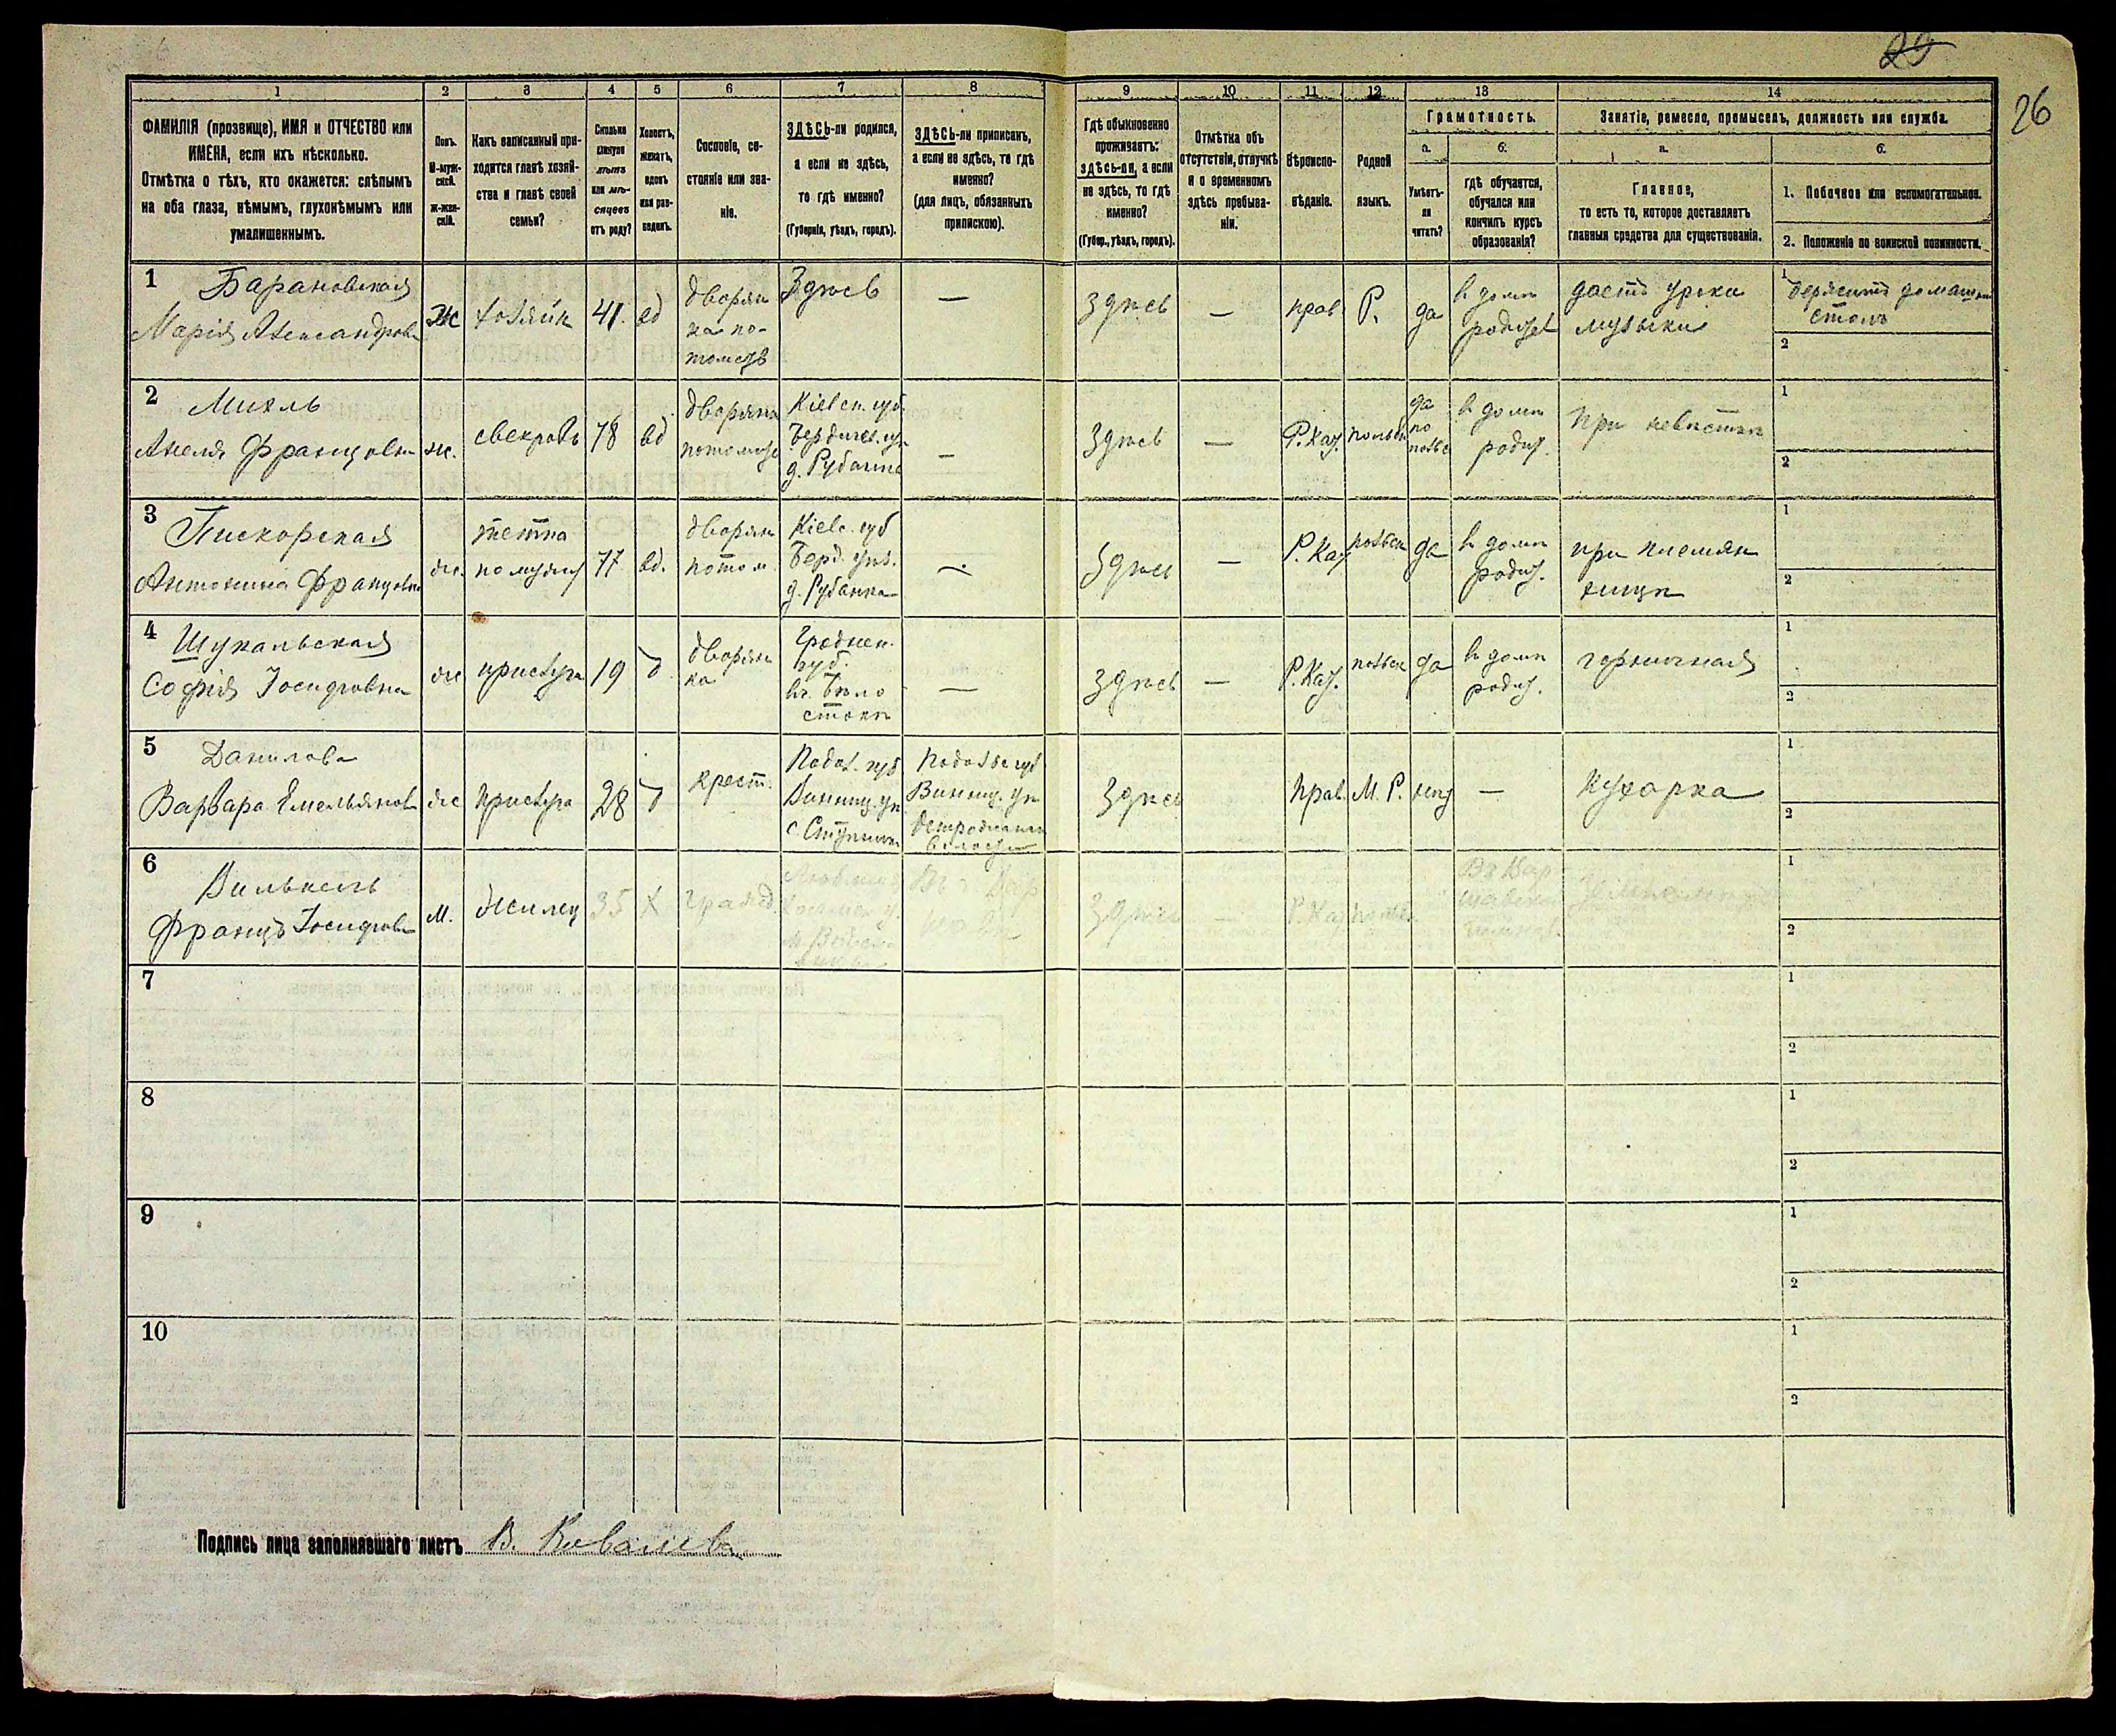 29
26
1
2
3
4
5
6
7
8
9
10
11
12
13
14
ФАМИЛІЯ (прозвище), ИМЯ и ОТЧЕСТВО или
ИМЕНА, если ихъ нѣсколько.
Отмѣтка о тѣхъ, кто окажется: слѣпымъ
на оба глаза, нѣмымъ, глухонѣмымъ или
умалишеннымъ.
Полъ.
М-муж-
ской.
Ж-жен-
скій.
Какъ записанный при-
ходится главѣ хозяй-
ства и главѣ своей
семьи?
Сколько
минуло
лѣтъ
или мѣ-
сяцевъ
отъ роду?
Холостъ,
женатъ,
вдовъ
или раз-
веденъ.
Сословіе, со-
стояніе или зва-
ніе.
ЗДѢСЬ-ли родился,
а если не здѣсь,
то гдѣ именно?
(Губернія, уѣздъ, городъ).
ЗДѢСЬ-ли приписанъ,
а если не здѣсь, то гдѣ
именно?
(для лицъ, обязанныхъ
припискою).
Гдѣ обыкновенно
проживаетъ:
ЗДѢСЬ-ли, а если
не здѣсь, то гдѣ
именно?
(Губер., уѣздъ, городъ).
Отмѣтка объ
отсутствіи, отлучкѣ
и о временномъ
здѣсь пребыва-
ніи.
Вѣроиспо-
вѣданіе.
Родной
языкъ.
Грамотность.
а.
Умѣетъ-
ли
читать?
б.
гдѣ обучается,
обучался или
кончилъ курсъ
образованія?
Занятіе, ремесло, промыселъ, должность или служба.
а.
Главное,
то есть то, которое доставляетъ
главныя средства для существованія.
б.
1. Побочное или вспомогательное.
2. Положеніе по воинской повинности.
1
Барановская
Марія Александров
ж
хозяйк
41.
вд
дворян
ка по-
томств
Здѣсь
—
здѣсь
—
прав
Р.
да
в домѣ
родит
даетъ уроки
музыки
1
держитъ домашн
столъ
2
2
Михль
Анеля Францовн
ж.
свекровь
78
вд
дворянка
потомст
Кіевск. губ.
Бердичев. уѣ
д. Рубанка
—
здѣсь
—
Р. Кат.
польск
да
по
польс
в домѣ
родит.
при невѣсткѣ
1
2
3
Пискорская
Антонина Францовн
ж.
тетка
по мужу
77
вд.
дворян
потом.
Кіевс. губ
Берд. уѣз.
д. Рубанка
—
здѣсь
—
Р. Кат
польск
да
в домѣ
родит.
при племян
ницѣ
1
2
4
Шукальская
Софія Іосифовна
ж
прислуга
19
д
дворян
ка
Гроднен.
губ.
въ Бѣло
стокѣ
—
здѣсь
—
Р. Кат.
польск
да
в домѣ
родит.
горничная
1
2
5
Данилова
Варвара Емельянов
ж
прислуга
28
д
крест.
Подол. губ
Винниц. уѣ
Подольс губ
Винниц. уѣ
здѣсь
прав.
М. Р.
нѣт
—
кухарка
1
2
6
Францъ Іосифов
м.
жилец
35
х
Въ г. Вар
здѣсь
—
Р. Кат
польск.
Въ Вар
шавской
гимназ.
1
2
7
1
2
8
1
2
9
1
2
10
1
2
Подпись лица заполнявшаго листъ В. Ковалева